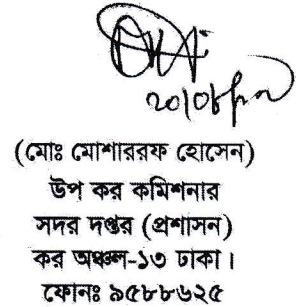 (মোঃ মোশাররফ হোসেন)
উপ কর কমিশনার
সদর দপ্তর (প্রশাসন)
কর অঞ্চল-১৩ ঢাকা।
ফোনঃ ৯৫৮৮৬২৫